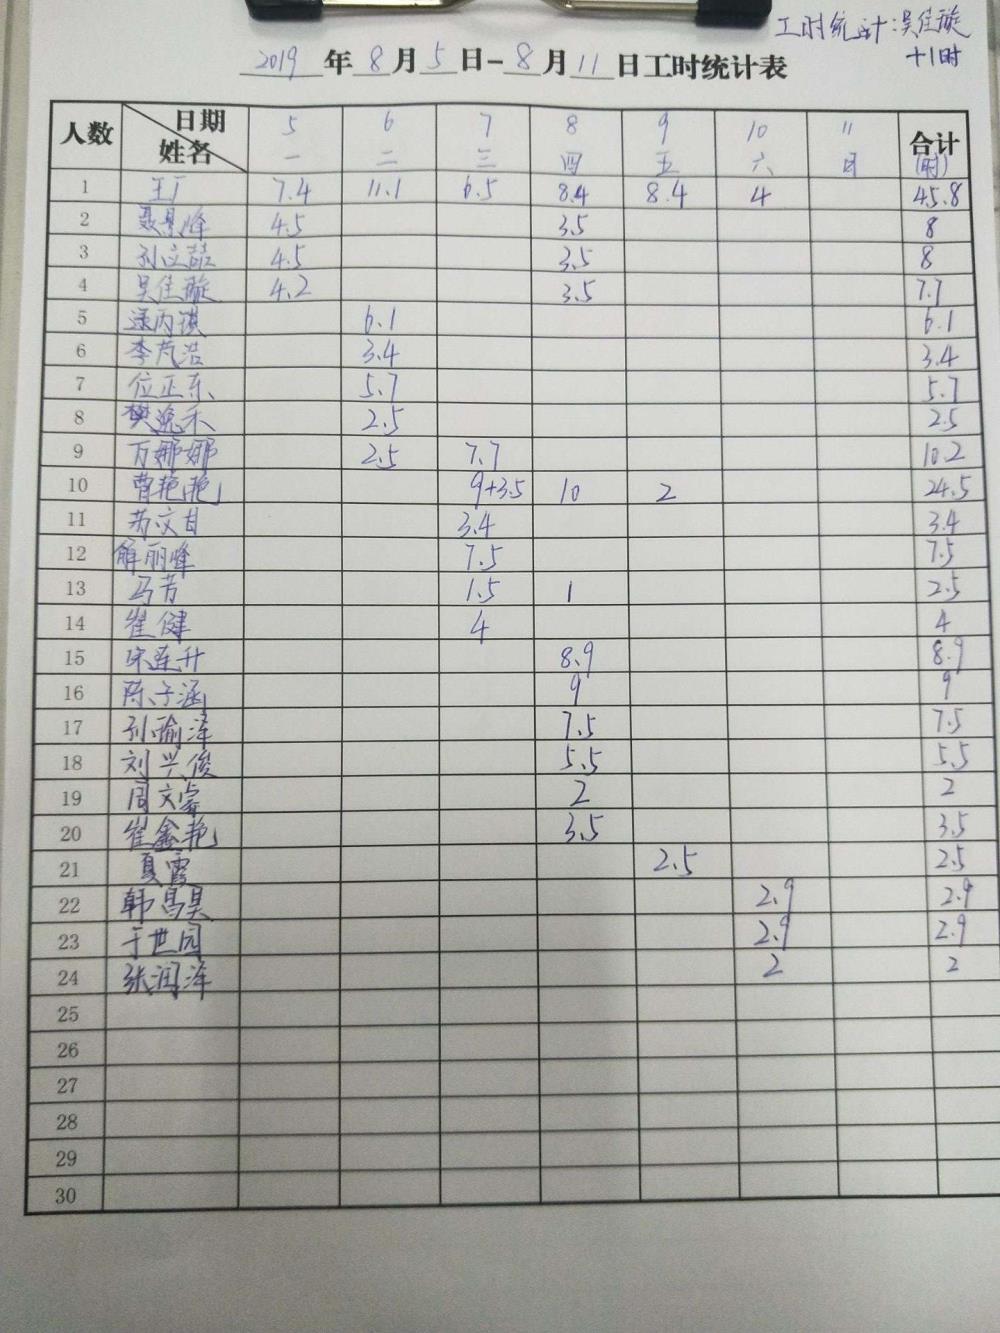 工时统计:吴佳璇
+1时
2019年8月5日-8月11日工时统计表
人数 日期 姓名 5 6 7 8 9 10 11 合计
一 二 三 四 五 六 日 (时)
1 王广 7.4 11.1 6.5 8.4 8.4 4 45.8
2 聂景峰 4.5 3.5 8
3 孙文喆 4.5 3.5 8
4 吴佳璇 4.2 3.5 7.7
5 丙琪 6.1 6.1
6 李芃浩 3.4 3.4
7 位正东 5.7 5.7
8 樊逸禾 2.5 2.5
9 万娜娜 2.5 7.7 10.2
10 曹艳艳 9+3.5 10 2 24.5
11 文甘 3.4 3.4
12 解丽峰 7.5 7.5
13 马芳 1.5 1 2.5
14 崔健 4 4
15 宋连升 8.9 8.9
16 陈子涵 9 9
17 孙瑜泽 7.5 7.5
18 刘兴俊 5.5 5.5
19 周文睿 2 2
20 崔鑫艳 3.5 3.5
21 夏霞 2.5 2.5
22 韩昌昊 2.9 2.9
23 于世园 2.9 2.9
24 张润泽 2 2
25
26
27
28
29
30